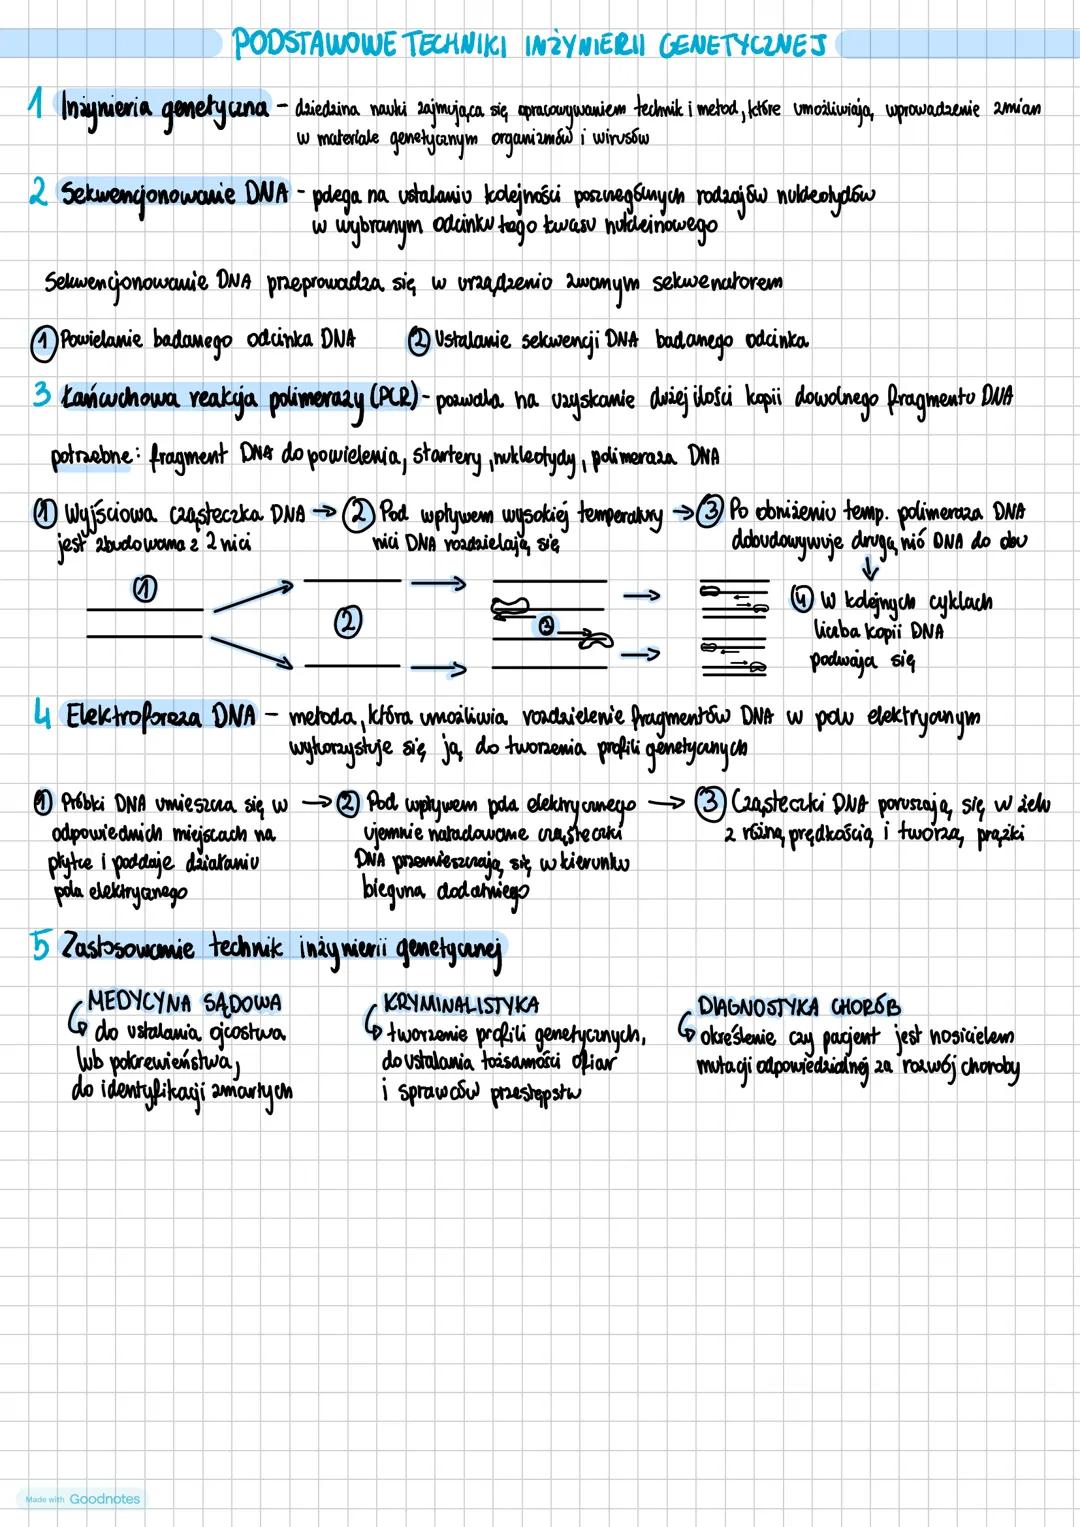 PODSTAWOWE TECHNIKI INŻYNIERII GENETYCZNEJ
1 Inżynieria genetyczna - dziedzina nauki zajmująca się opracowywaniem technik i metod, które umożliwiają wprowadzenie zmian
w materiale genetycznym organizmów i wirusów
2 Sekwencjonowanie DNA - polega na ustalaniu kolejności poszczególnych rodzajów nukleotydów
w wybranym odcinku tego kwasu nukleinowego
Sekwencjonowanie DNA przeprowadza się w urządzeniu zwanym sekwenatorem
1 Powielanie badanego odcinka DNA 2 Ustalanie sekwencji DNA badanego odcinka
3 Łańcuchowa reakcja polimerazy (PCR) - pozwala na uzyskanie dużej ilości kopii dowolnego fragmentu DNA
potrzebne: fragment DNA do powielenia, startery, nukleotydy, polimeraza DNA
1 Wyjściowa cząsteczka DNA → 2 Pod wpływem wysokiej temperatury → 3 Po obniżeniu temp. polimeraza DNA
jest zbudowana z 2 nici nici DNA rozdzielają się dobudowywuje drugą nić DNA do obu
1 2 3
4 W kolejnych cyklach
liczba kopii DNA
podwaja się
4 Elektroforeza DNA - metoda, która umożliwia rozdzielenie fragmentów DNA w polu elektrycznym
wykorzystuje się ją do tworzenia profili genetycznych
1 Próbki DNA umieszcza się w
odpowiednich miejscach na
płytce i poddaje działaniu
pola elektrycznego
→ 2 Pod wpływem pola elektrycznego
ujemnie naładowane cząsteczki
DNA przemieszczają się w kierunku
bieguna dodatniego
→ 3 Cząsteczki DNA poruszają się w żelu
z różną prędkością i tworzą prążki
5 Zastosowanie technik inżynierii genetycznej
MEDYCYNA SĄDOWA
do ustalania ojcostwa
lub pokrewieństwa,
do identyfikacji zmarłych
KRYMINALISTYKA
tworzenie profili genetycznych,
do ustalania tożsamości ofiar
i sprawców przestępstw
DIAGNOSTYKA CHORÓB
określenie czy pacjent jest nosicielem
mutacji odpowiedzialnej za rozwój choroby
Made with Goodnotes